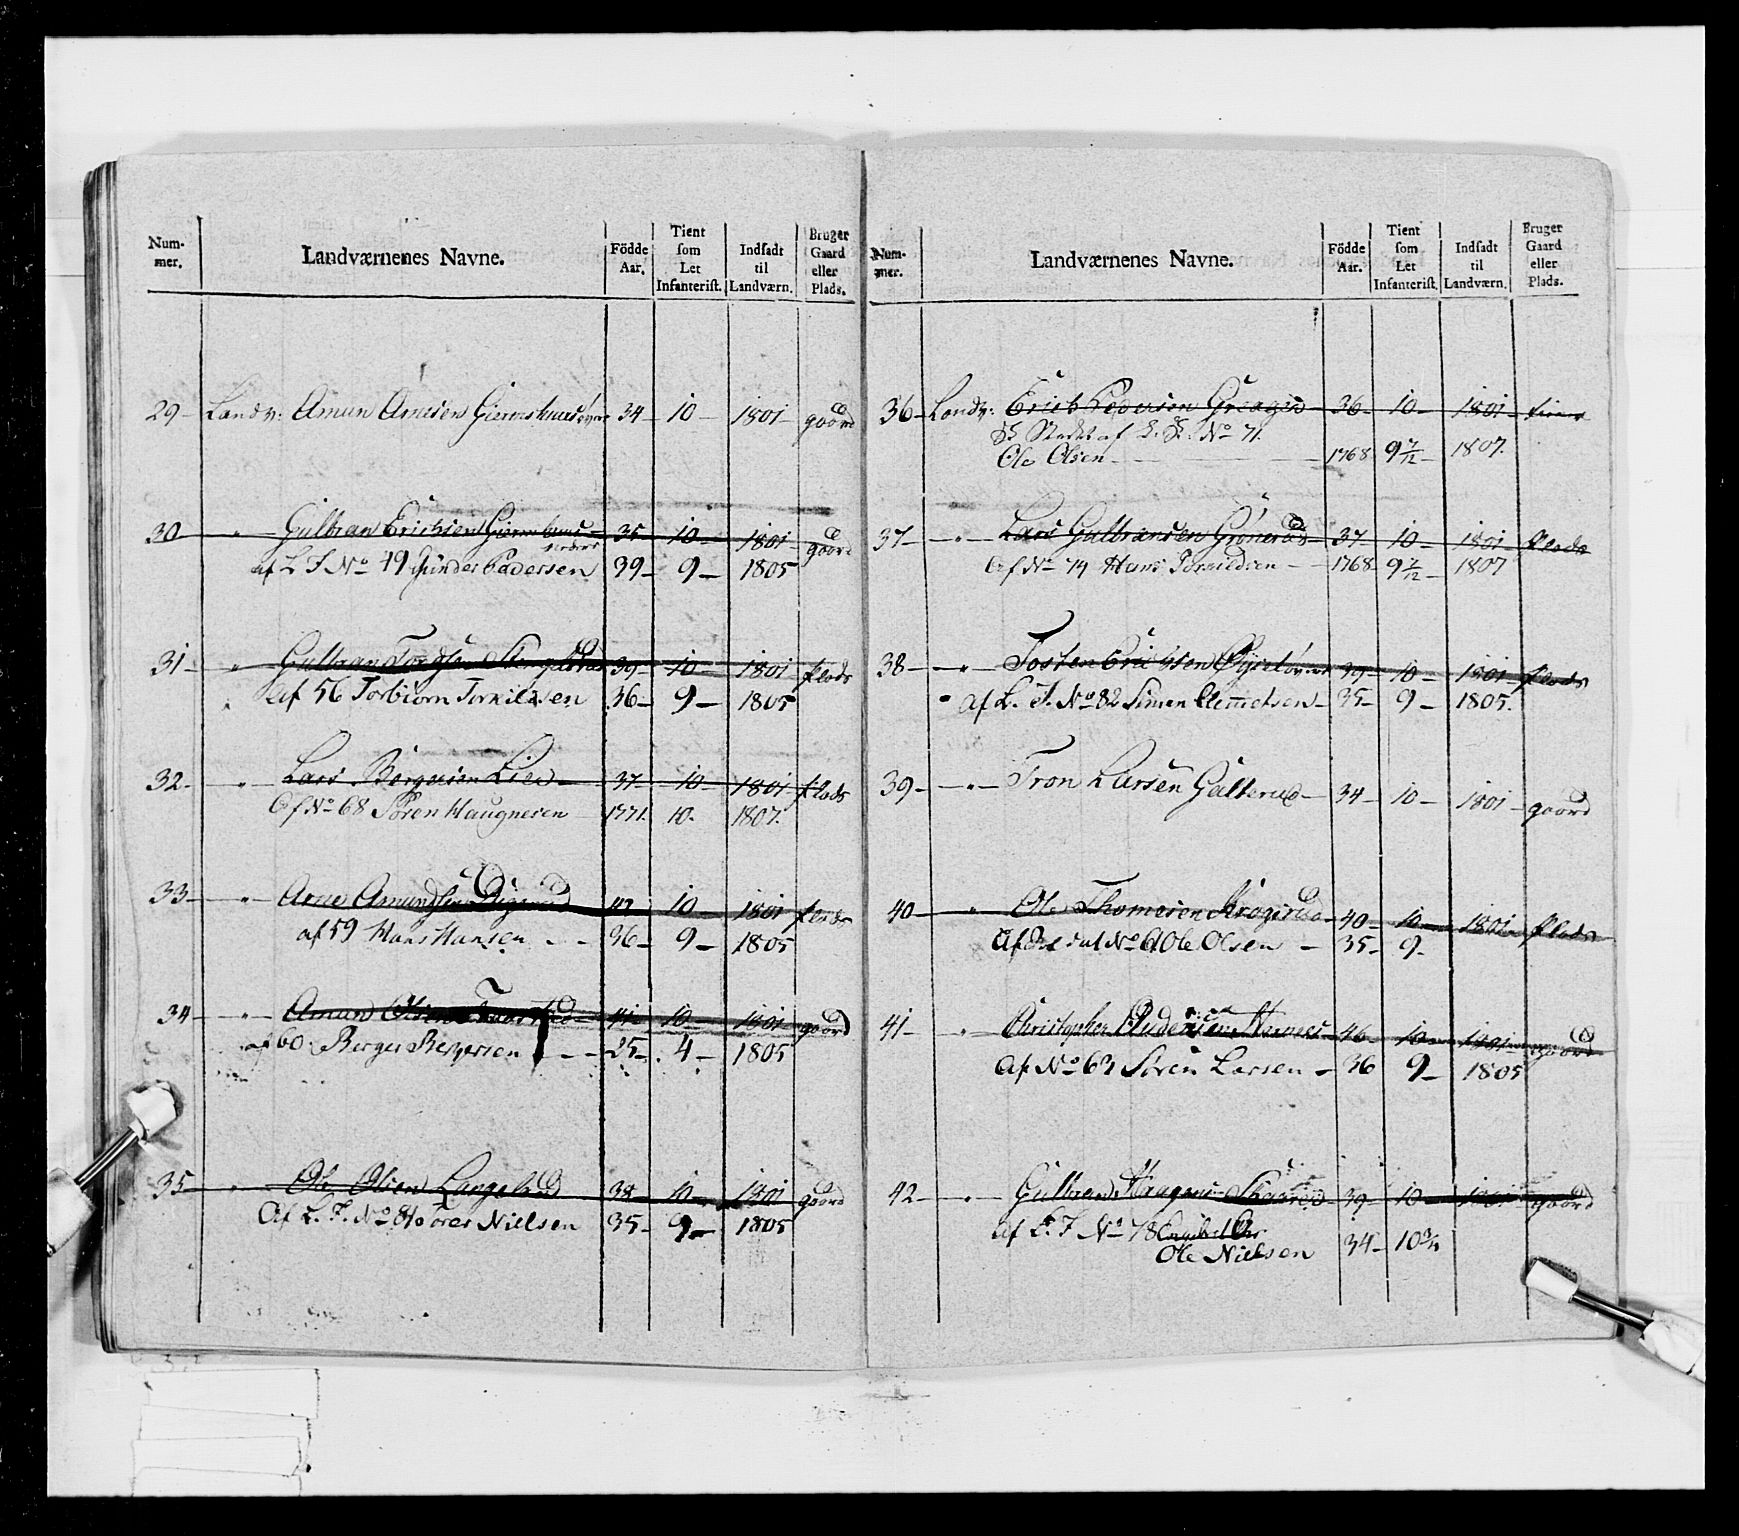 Num-
mer.
Landværnenes Navne.
Födde
Aar.
Tient
som
Let
Infanterist.
Indsadt
til
Landværn.
Bruger
Gaard
eller
Plads.
29 - Landv: Amun Amesen 34 - 10 - 1801 gaard
30 - " - Gulbran Erichsen 35 - 10 - 1801 - gaard
af L I No 49 Gunder Pedersen 39 - 9 - 1805
31 - " Gulbran 39 - 10 - 1801 plads
af 56 Torbiorn Torkildsen 36 - 9 - 1805
32 - " - Lars Bergersen Lien - 37 - 10 - 1801 - plads
Af No 68 Sören Haugnesen 1771. 10. 1807.
33 - " - Arne Amundsen 10 - 1801 plads
af 59 Hans Hansen - - 36 - 9 - 1805
34 - " - Amun Olsen 41 - 10 - 1801 - gaard
af 60 Berger Bergersen - - 25 - 4 - 1805
35 - " Ole Olsen Langelud 38 - 10 - 1801 gaard
Af L. I. No 8 Nielsen 35 - 9 - 1805
Num-
mer.
Landværnenes Navne.
Födde
Aar.
Tient
som
Let
Infanterist.
Indsadt
til
Landværn.
Bruger
Gaard
eller
Plads.
36 - Landv: Erich Pedersen 36 - 10 - 1801 -
af No 71.
Ole Olsen - 1768 9 7/12 - 1807.
37 - " - Lars Gulbransen Grönerud 37 - 10 - 1801 - plads
Af No 74 Hans - 1768 9 7/12 - 1807
38 - " - Tosten Erichsen 39 - 10 - 1801 - plads
af L. I. No 82 Simen Clemetsen - 35 - 9 - 1805.
39 - " - Tron Larsen Galterud - 34 - 10 - 1801 - gaard
40 - " Ole Thomesen 40 - 10 - 1801 - plads
Ole Olsen - 35 - 9 -
41 - " - Christopher 46 - 10 - 1801 - gaard
Af No 63 Sören Larsen - 36 9 - 1805
42 - " - Gulbran 39 - 10 - 1801 - gaard
af L. I No 78
Ole Nielsen 34 - 10 3/4